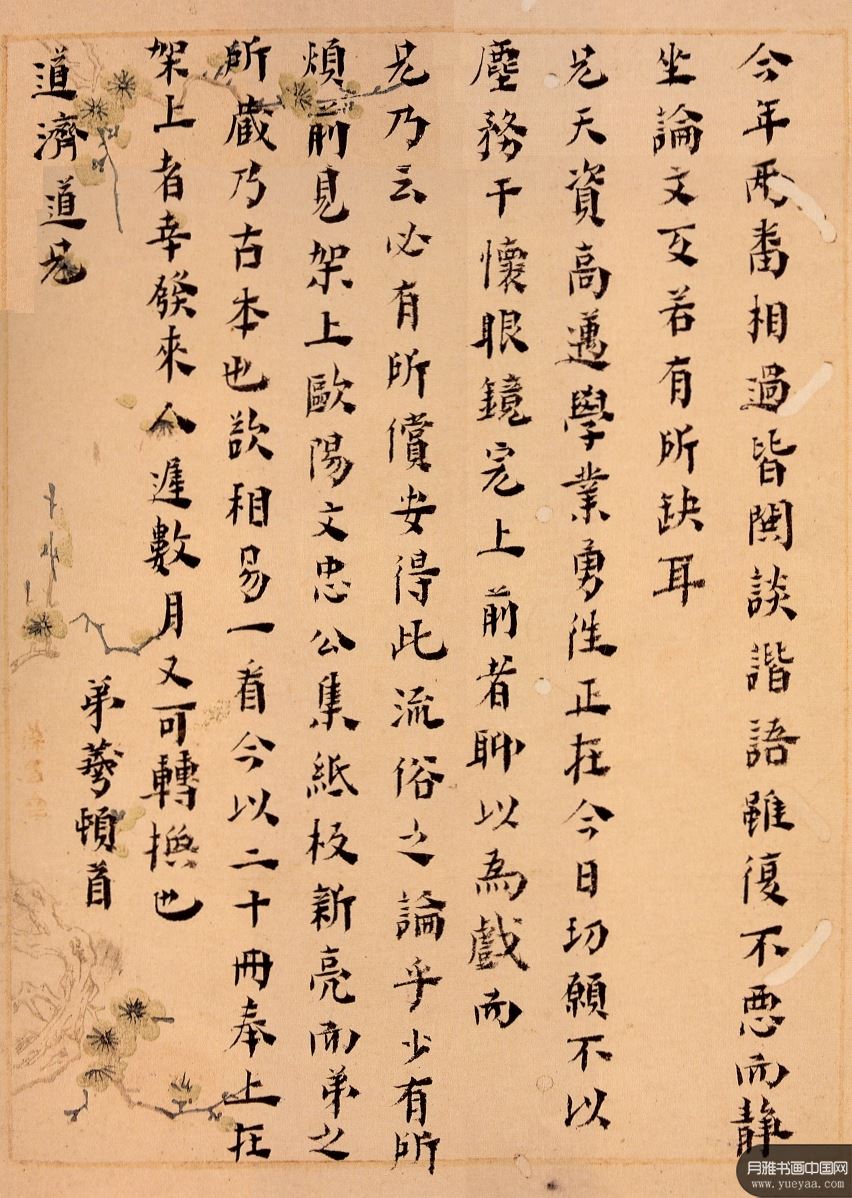 今年兩番相過皆閧談諧語雖復不惡而靜
坐論文互若有所缺耳
兄天資高邁學業勇往正在今日切願不以
塵務干懷眼鏡完上前者聊以為戲而
兄乃云必有所償安得此流俗之論乎少有所
煩前見架上歐陽文忠公集紙板新亮而弟之
所藏乃古本也欲相易一看今以二十冊奉上在
架上者幸發來人遲數月又可轉換也
弟蕚頓首
道濟道兄
月雅书画中国网
www.yueyaa.com